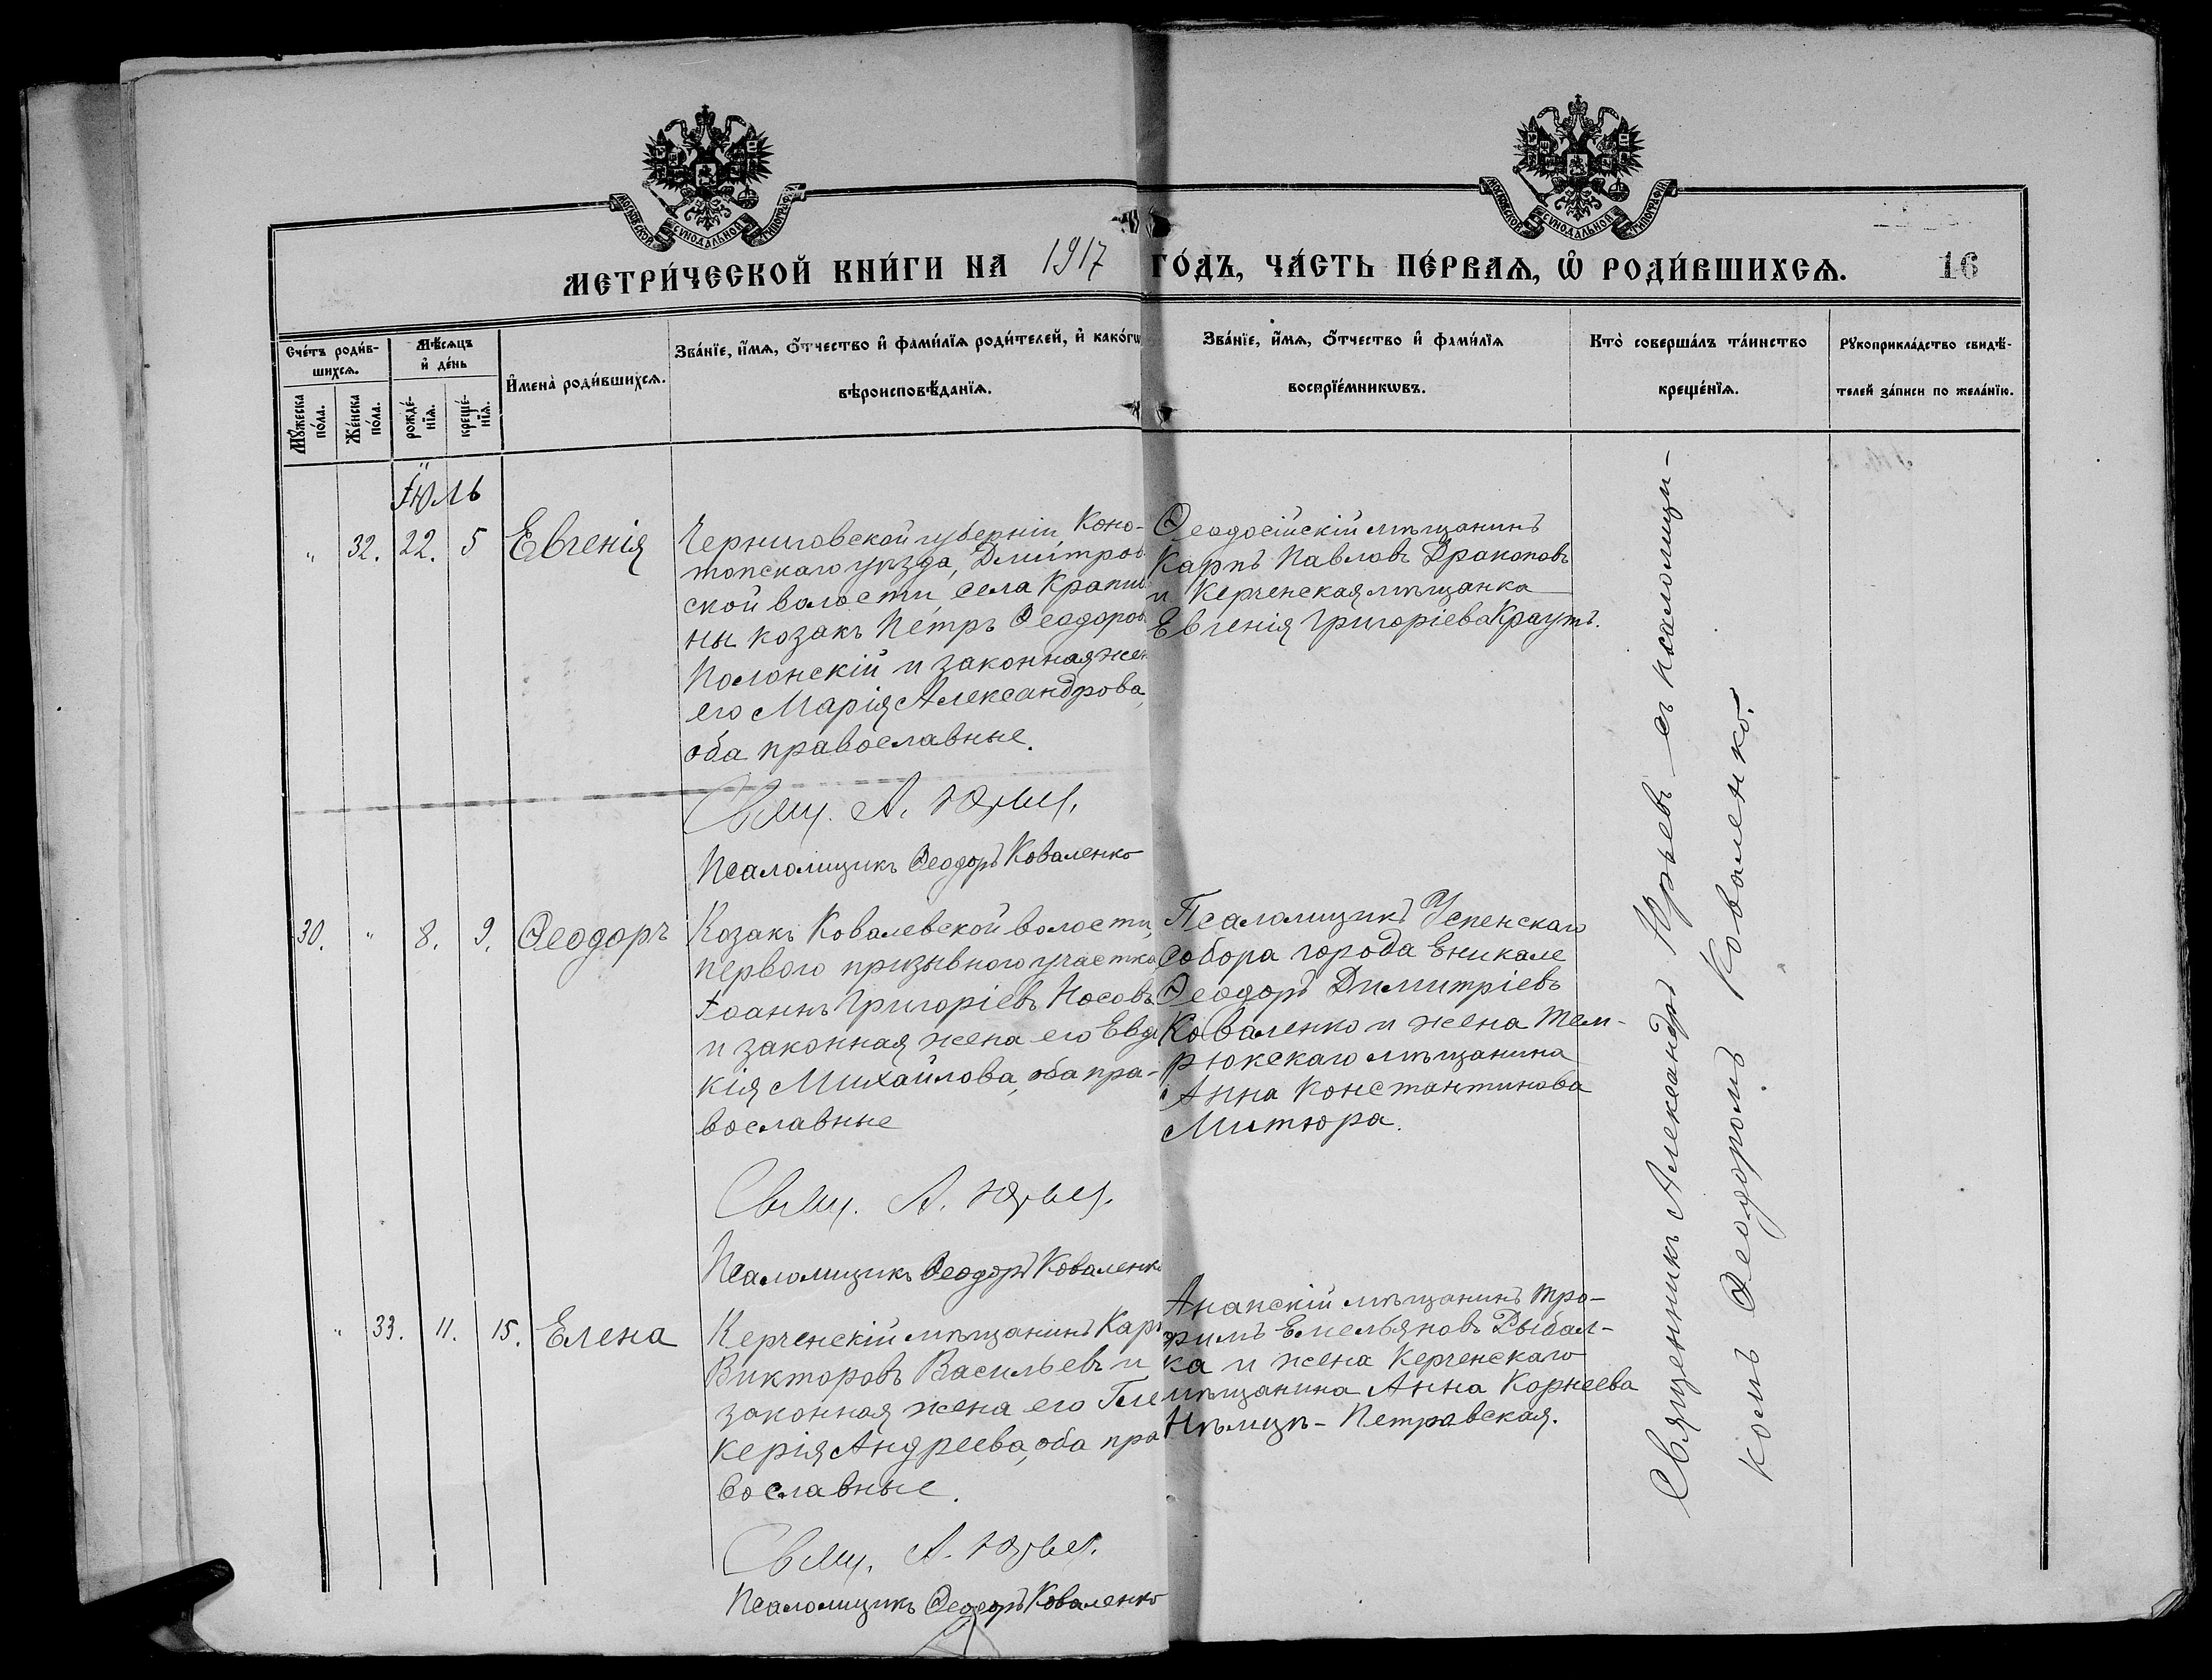 МОСКОВСКОЙ СѴНОДАЛЬНОЙ ТИПОГРАФІИ
МОСКОВСКОЙ СѴНОДАЛЬНОЙ ТИПОГРАФІИ
МЕТРИ́ЧЕСКОЙ КНИ́ГИ НА 1917 ГО́ДЪ, ЧА́СТЬ ПЕ́РВАѦ, Ѽ РОДИ́ВШИХСѦ. 16
Сче́тъ роди́в-
шихсѧ.
Мꙋ́жеска по́ла.
Же́нска по́ла.
Мѣ́сѧцъ
и҆ де́нь
рожде́-
нїѧ.
креще́-
нїѧ.
И҆мена̀ роди́вшихсѧ.
Зва́нїе, и҆́мѧ, ѻ҆́тчество и҆ фами́лїѧ роди́телей, и҆ како́гѡ
вѣроисповѣ́данїѧ.
Зва́нїе, и҆́мѧ, ѻ҆́тчество и҆ фами́лїѧ
воспрїе́мникѡвъ.
Кто̀ соверша́лъ та́инство
креще́нїѧ.
Рꙋкоприкла́дство свидѣ́-
телей за́писи по жела́нїю.
Іюль
" 32. 22. 5 Евгенія
Черниговской губерніи, Коно-
топскаго уѣзда, Дмитров
ской волости, села Крапив
ны козакъ Петръ Ѳеодоров
Полонскій и законная жен
его Марія Александрова,
оба православные.
Свящ. А. Юрьев.
Псаломщикъ Ѳеодоръ Коваленко
Ѳеодосійскій мѣщанинъ
Карпъ Павловъ Драконовъ
и Керченская мѣщанка
Евгенія Григоріева Краутъ.
30. " 8. 9. Ѳеодоръ
Козакъ Ковалевской волости,
первого призывного участка
Іоаннъ Григоріевъ Носовъ
и законная жена его Евдо
кія Михайлова, оба пра-
вославные
Свящ. А. Юрьев.
Псаломщикъ Ѳеодоръ Коваленко
Псаломщикъ Успенскаго
собора города Еникале
Ѳеодоръ Димитріевъ
Коваленко и жена Тем-
рюкскаго мѣщанина
Анна Константинова
Митюра.
" 33. 11. 15. Елена
Керченскій мѣщанинъ Карп
Викторовъ Васильевъ и
законная жена его Гли
керія Андреева, оба пра
вославные.
Свящ. А. Юрьев.
Псаломщикъ Ѳеодоръ Коваленко
Анапскій мѣщанинъ Тро-
фимъ Емельяновъ Рыбал-
ка и жена Керченскаго
мѣщанина Анна Корнеева
Нѣмцъ-Петровская.
Священникъ Александръ Юрьевъ съ псаломщи-
комъ Ѳеодоромъ Коваленко.